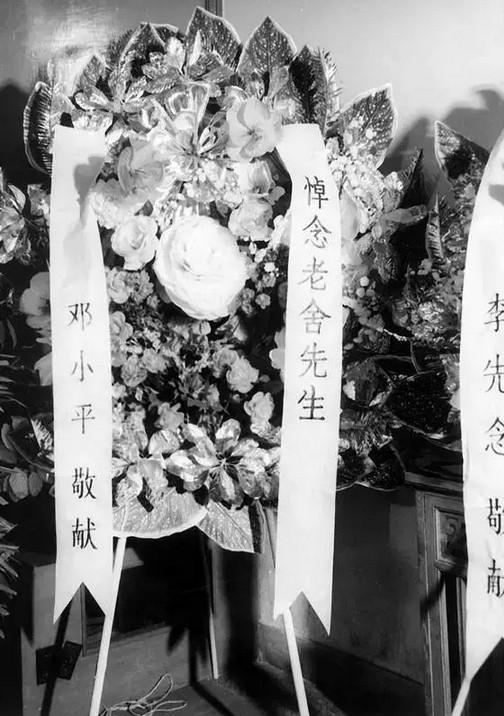 悼念老舍先生
邓小平 敬献
李先念 敬献